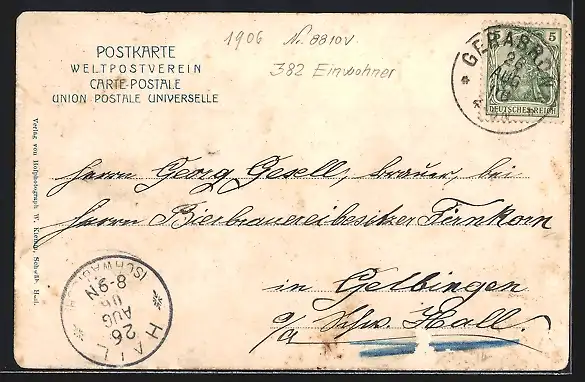 1906 N. 8810V.
382 Einwohner
POSTKARTE
WELTPOSTVEREIN
CARTE-POSTALE
UNION POSTALE UNIVERSELLE
GERABRONN
26
AUG
06
5
DEUTSCHES REICH
Verlag von Hofphotograph W. Schwäb. Hall.
Herrn Georg Gesell, brauer, bei
Herrn Bierbrauereibesitzer Firnkorn
in Gelbingen
o/a Schw. Hall.
HALL
(SCHWÄB.)
26
AUG
06
8-9N